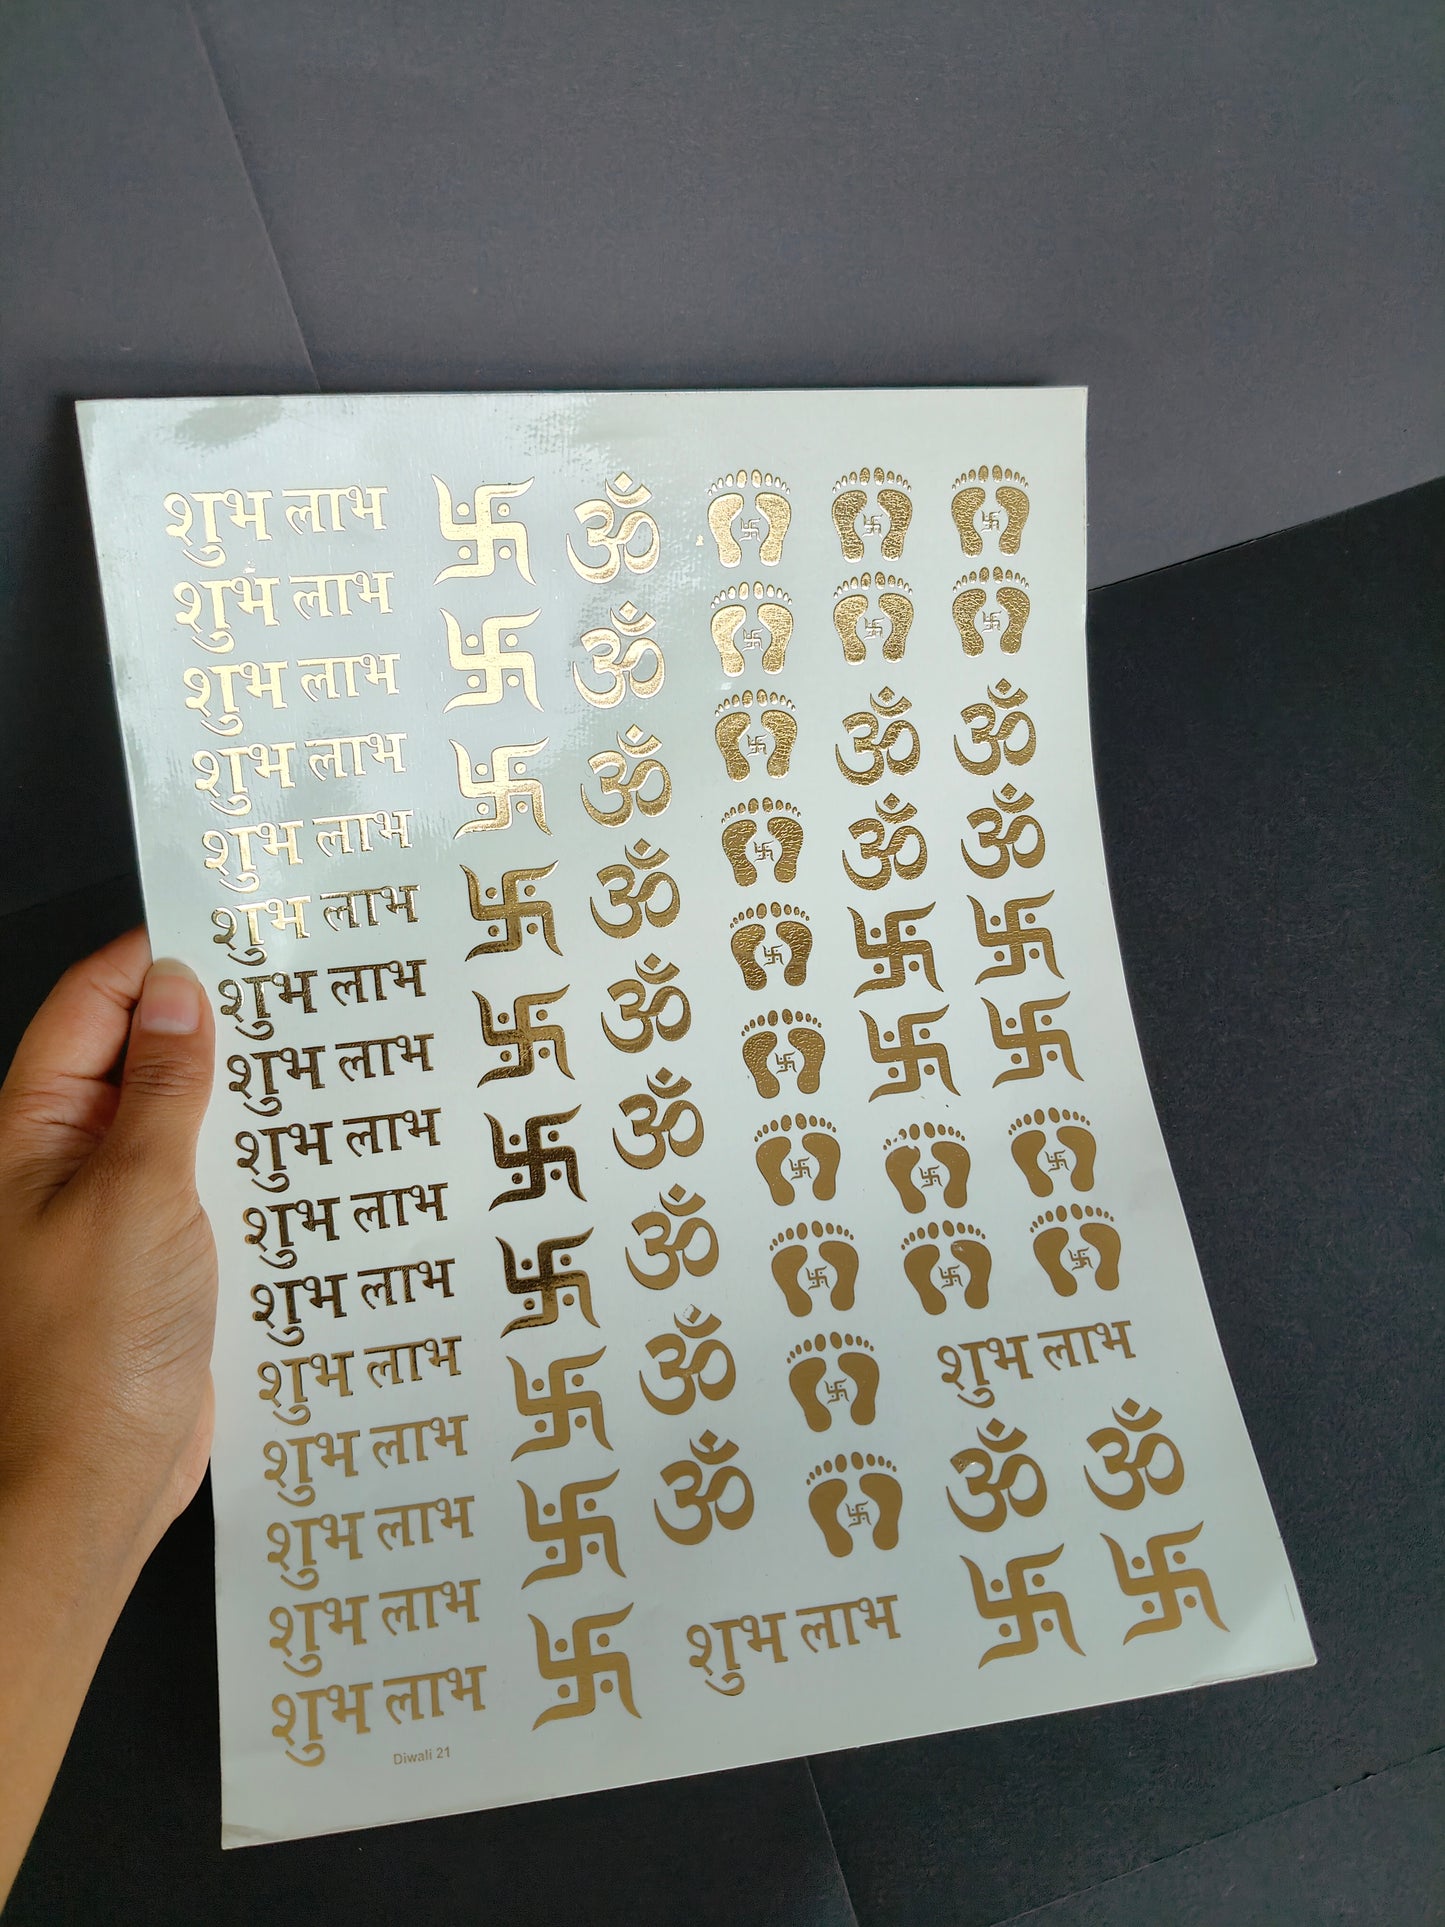 शुभ लाभ ॐ
शुभ लाभ
शुभ लाभ ॐ
शुभ लाभ ॐ ॐ ॐ
शुभ लाभ ॐ ॐ
शुभ लाभ ॐ
शुभ लाभ ॐ
शुभ लाभ
शुभ लाभ ॐ
शुभ लाभ ॐ
शुभ लाभ
शुभ लाभ ॐ शुभ लाभ
शुभ लाभ
शुभ लाभ ॐ ॐ ॐ
शुभ लाभ
शुभ लाभ शुभ लाभ
Diwali 21